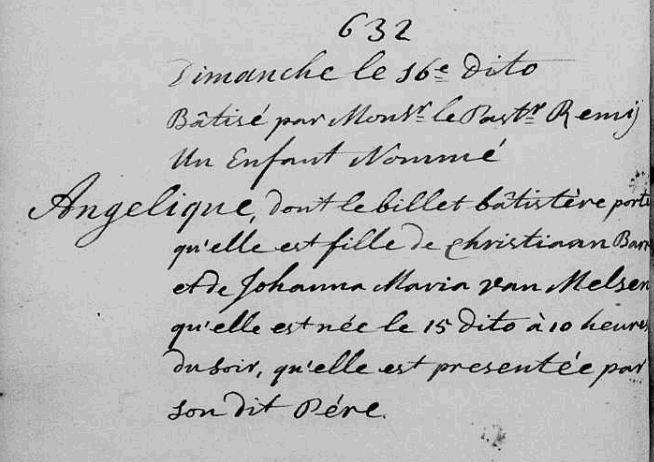 632
Dimanche le 16e dito
Bâtisé par Monsr. le Pastr. Remij
Un Enfant Nommé
Angelique, dont le billet bâtistère porte
qu'elle est fille de Christiaan
et de Johanna Maria van Melsen
qu'elle est née le 15 dito à 10 heures
du soir, qu'elle est presentée par
son dit Pére.